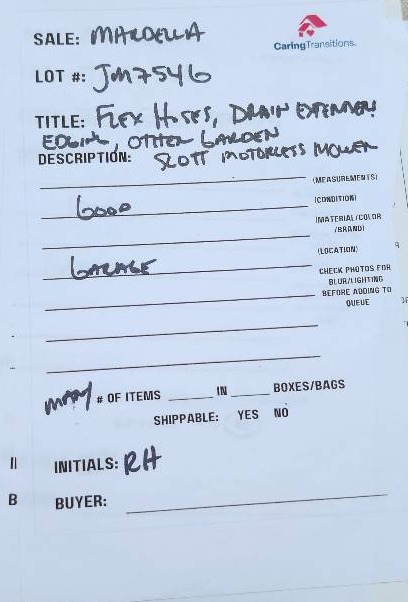 SALE: MARDELLA
CaringTransitions.
LOT #: JM7546
TITLE: FLEX HOSES, DRAIN EXTENDERS
EDGING, OTHER GARDEN
DESCRIPTION: SCOTT MOTORLESS MOWER
(MEASUREMENTS)
GOOD (CONDITION)
(MATERIAL/COLOR
/BRAND)
(LOCATION)
GARAGE
CHECK PHOTOS FOR
BLUR/LIGHTING
BEFORE ADDING TO
QUEUE
MANY # OF ITEMS ____ IN ____ BOXES/BAGS
SHIPPABLE: YES NO
INITIALS: RH
B BUYER: